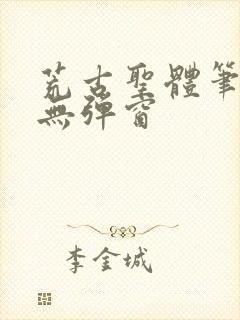 荒古聖體筆
無彈窗
李金城